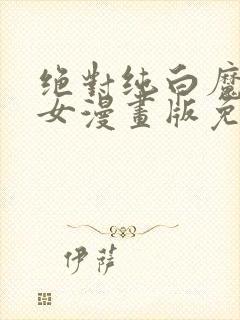 絕對純白魔
女漫畫版免
伊薩